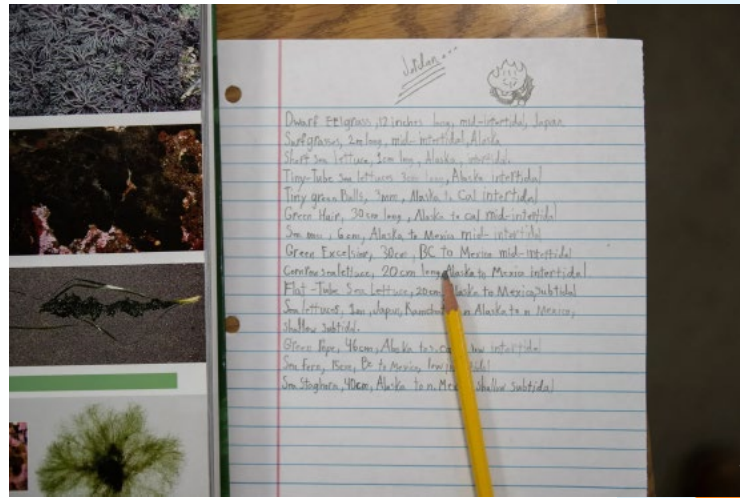 Jordan...
Dwarf Eelgrass, 12 inches long, mid-intertidal, Japan
Surfgrasses, 2m long, mid-intertidal, Alaska
Short sea lettuce, 1cm long, Alaska, intertidal
Tiny-Tube Sea lettuces 3cm long, Alaska intertidal
Tiny green Balls, 3mm, Alaska to Cal intertidal
Green Hair, 30cm long, Alaska to cal mid-intertidal
Sea moss, 6cm, Alaska to Mexico mid-intertidal
Green Excelsior, 30cm, BC to Mexico mid-intertidal
sea lettuce, 20cm long, Alaska to Mexico intertidal
Flat-Tube Sea Lettuce, 20cm, Alaska to Mexico, subtidal
Sea lettuces, 1m, Japan, n Alaska to n Mexico,
shallow subtidal.
Green Rope, 46cm, Alaska to s. intertidal
Sea Fern, 15cm, Bc to Mexico, low
Sea Staghorn, 40cm, Alaska to n. shallow subtidal